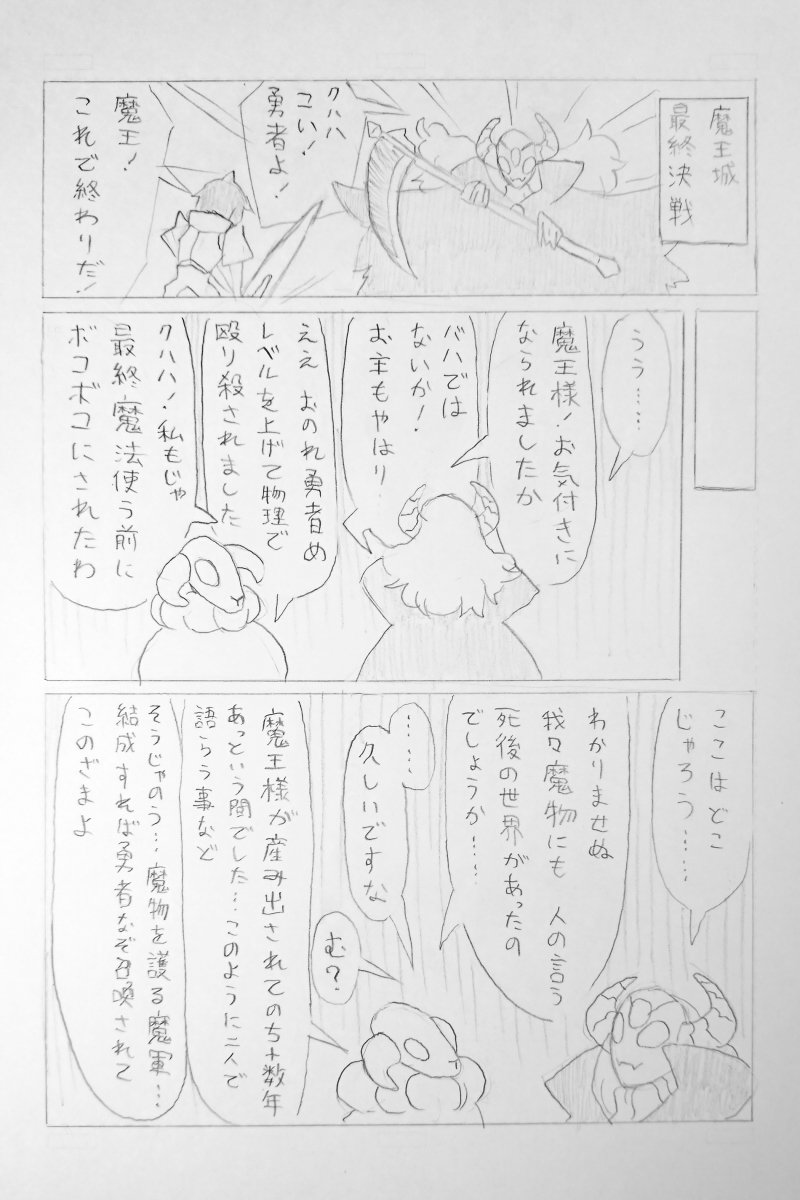 魔王城
最終決戦
クハハ
こい！
勇者よ！
魔王！
これで終わりだ！
うう……
魔王様！お気付きに
なられましたか
バハでは
ないか！
お主もやはり…
ええ おのれ勇者め
レベルを上げて物理で
殴り殺されました
クハハ！私もじゃ
最終魔法使う前に
ボコボコにされたわ
ここはどこ
じゃろう……
わかりませぬ
我々魔物にも 人の言う
死後の世界があったの
でしょうか……
……
久しいですな
む？
魔王様が産み出されてのち十数年
あっという間でした…このように二人で
語らう事など
そうじゃのう…魔物を護る魔軍…
結成すれば勇者なぞ召喚されて
このざまよ